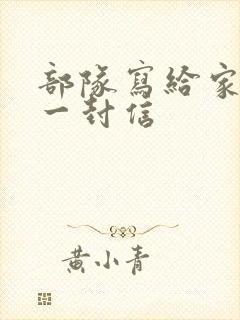 部隊寫給家
一封信
黃小青